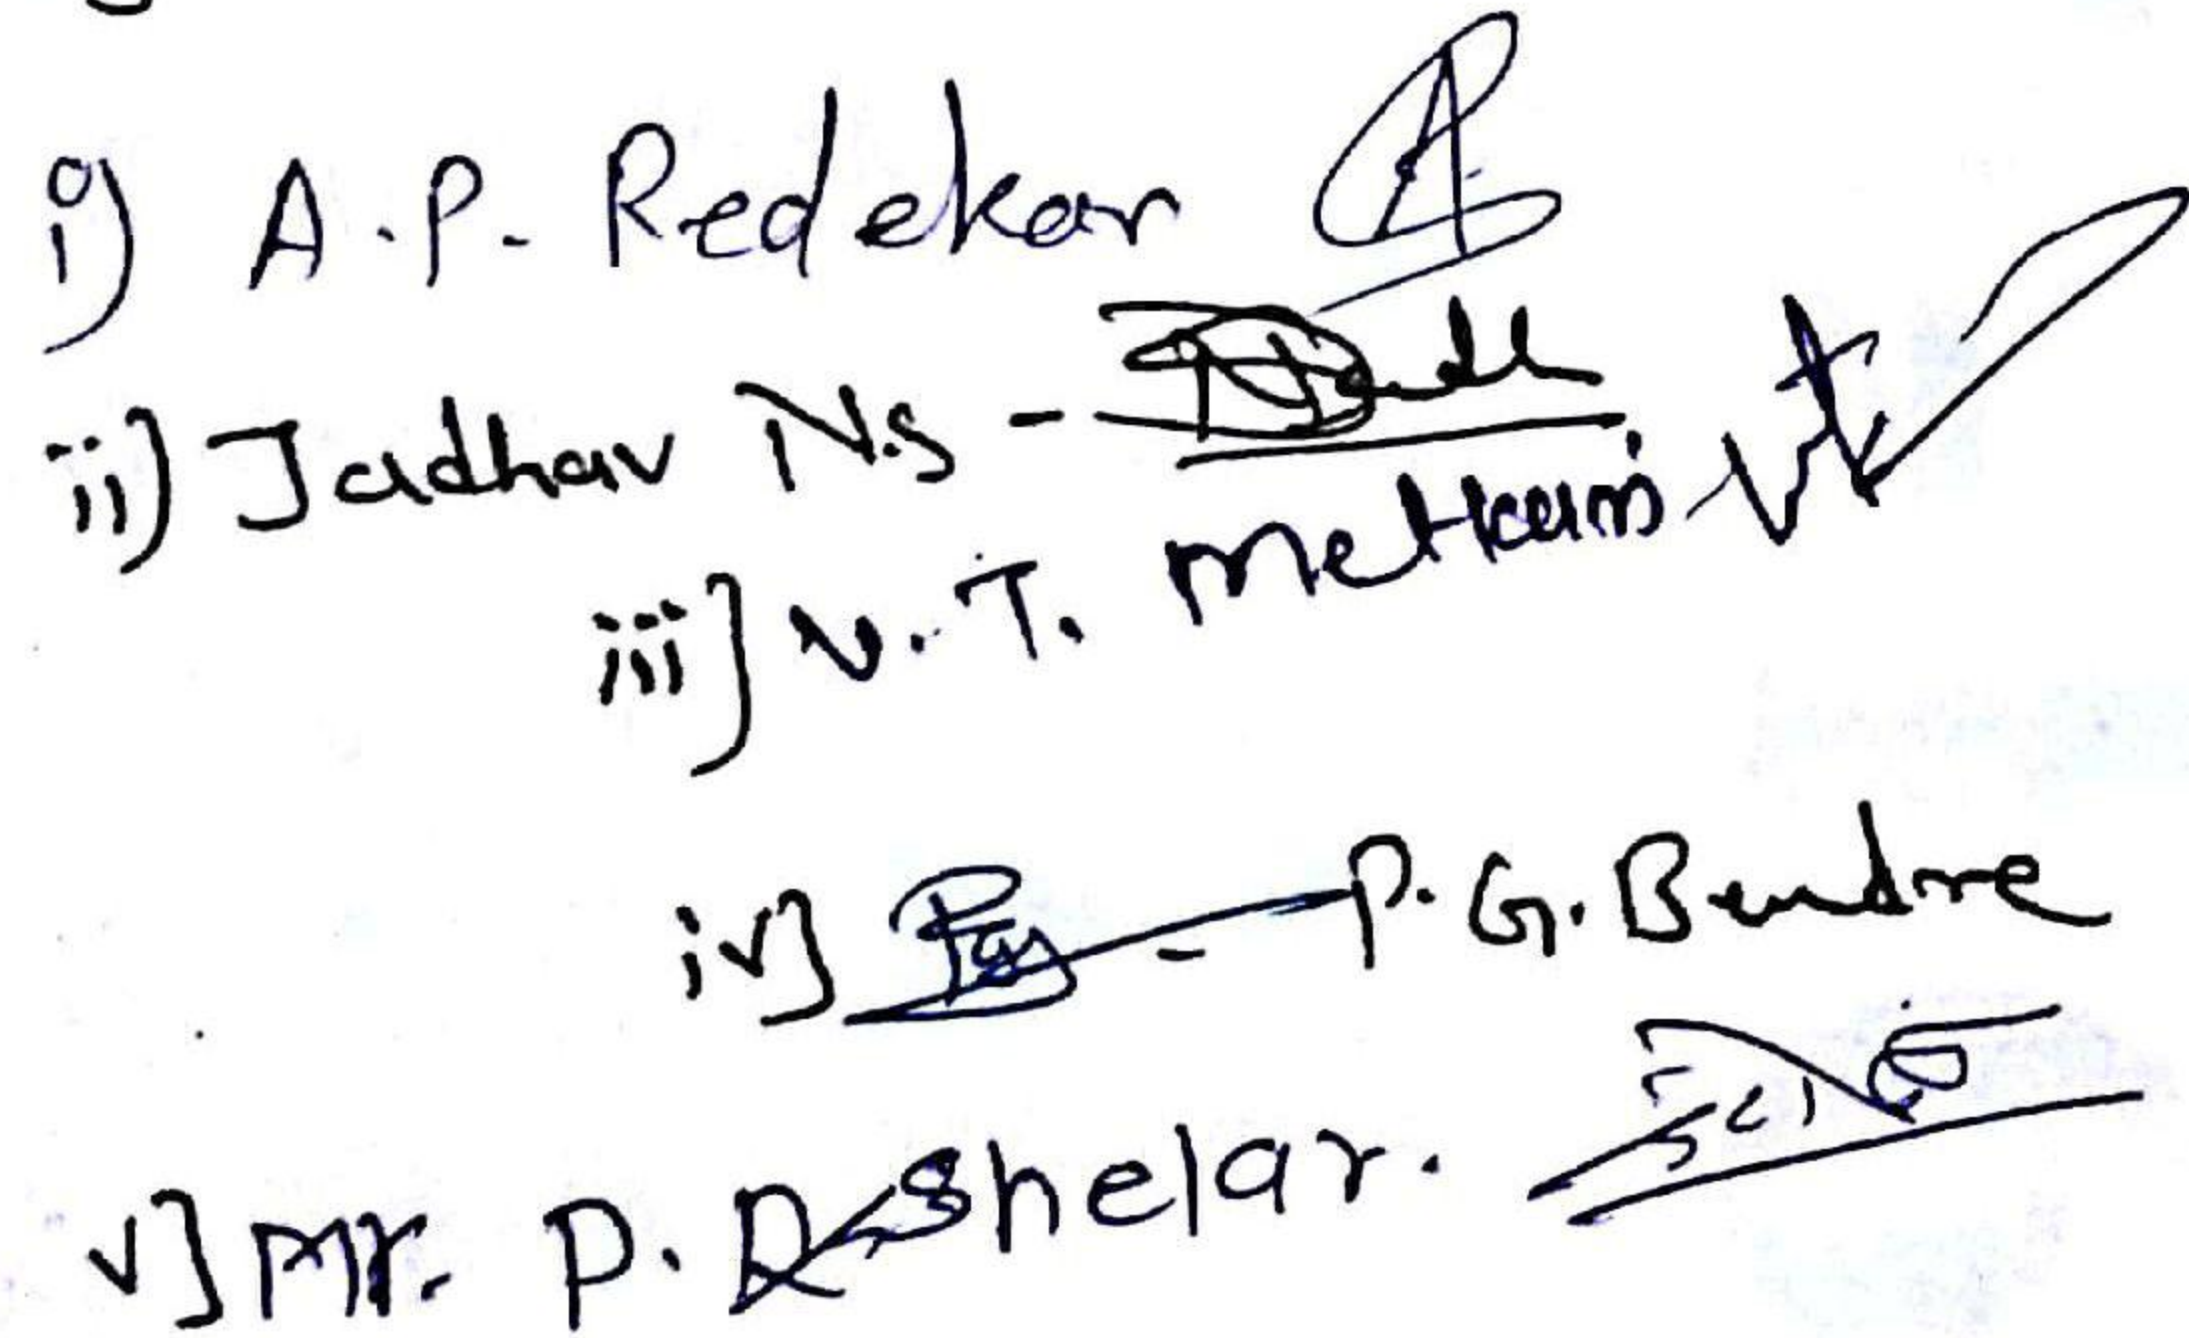 i) A.P. Redekar
ii) Jadhav N.S -
iii] V.T. Metkari
iv] - P.G. Bendre
v] Mr. P. R. Shelar.